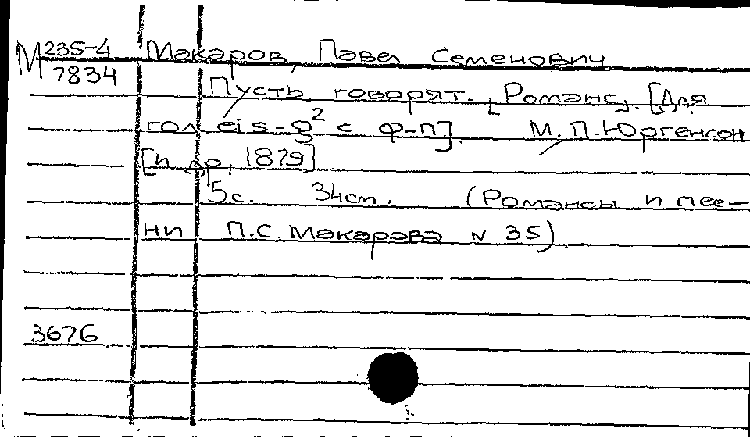 М 235-4 Макаров, Павел Семенович
7834 Пусть говорят. [Романс]. [Для
гол. eis-g² с ф-п]. М. П. Юргенсон
[и др. 1879]
5с. 34см. (Романсы и пес-
ни П.С. Макарова N 35)
3676